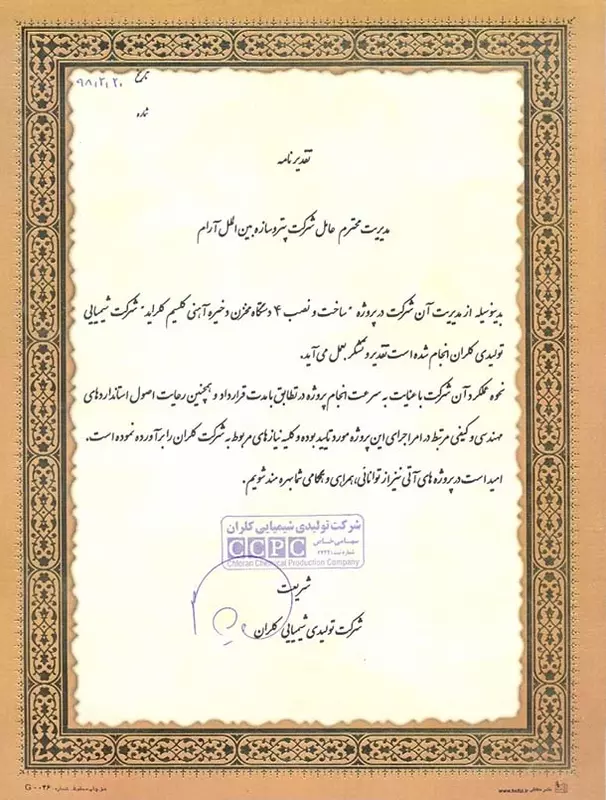 تاریخ ۹۸/۳/۲۰
شماره
تقدیرنامه
مدیریت محترم عامل شرکت پتروسازه بین الملل آرام
بدینوسیله از مدیریت آن شرکت در پروژه "ساخت و نصب ۴ دستگاه مخزن ذخیره آهنی کلسیم کلراید" شرکت شیمیایی
تولیدی کلران انجام شده است تقدیر و تشکر بعمل می آید.
نحوه عملکرد آن شرکت با عنایت به سرعت انجام پروژه در تطابق با مدت قرارداد و همچنین رعایت اصول استانداردهای
مهندسی و کیفی مرتبط در امر اجرای این پروژه مورد تایید بوده و کلیه نیازهای مربوط به شرکت کلران را برآورده نموده است.
امید است در پروژه های آتی نیز از توانائی، همراهی و همگامی شما بهره مند شویم.
شرکت تولیدی شیمیایی کلران
سهامی خاص
CCPC
شماره ثبت
Chloran Chemical Production Company
شریعت
شرکت تولیدی شیمیایی کلران
G - ۰۳۶
www.hofzi.ir